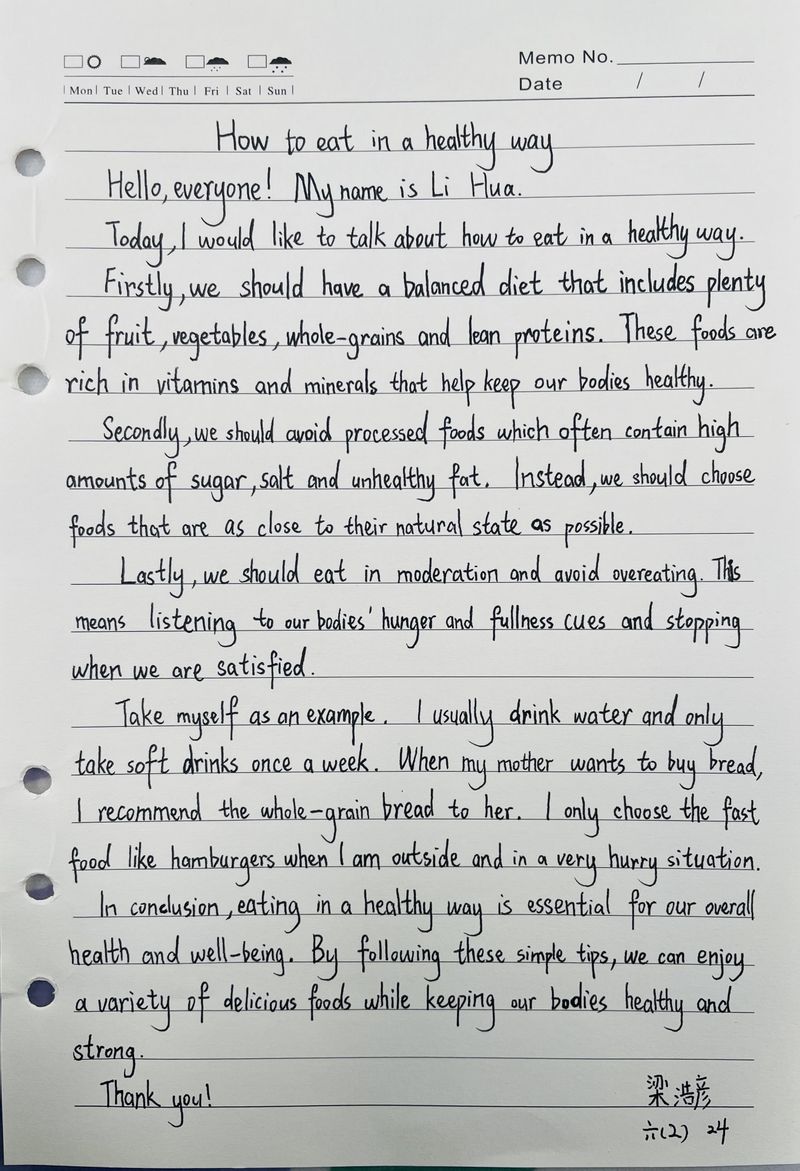 Memo No.
Mon Tue Wed Thu Fri Sat Sun
Date / /
How to eat in a healthy way
Hello, everyone! My name is Li Hua.
Today, I would like to talk about how to eat in a healthy way.
Firstly, we should have a balanced diet that includes plenty
of fruit, vegetables, whole-grains and lean proteins. These foods are
rich in vitamins and minerals that help keep our bodies healthy.
Secondly, we should avoid processed foods which often contain high
amounts of sugar, salt and unhealthy fat. Instead, we should choose
foods that are as close to their natural state as possible.
Lastly, we should eat in moderation and avoid overeating. This
means listening to our bodies' hunger and fullness cues and stopping
when we are satisfied.
Take myself as an example. I usually drink water and only
take soft drinks once a week. When my mother wants to buy bread,
I recommend the whole-grain bread to her. I only choose the fast
food like hamburgers when I am outside and in a very hurry situation.
In conclusion, eating in a healthy way is essential for our overall
health and well-being. By following these simple tips, we can enjoy
a variety of delicious foods while keeping our bodies healthy and
strong.
Thank you!
梁浩彦
六(2) 24